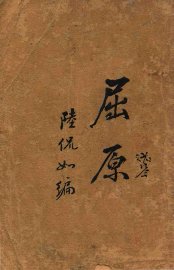 屈原
陸侃如編